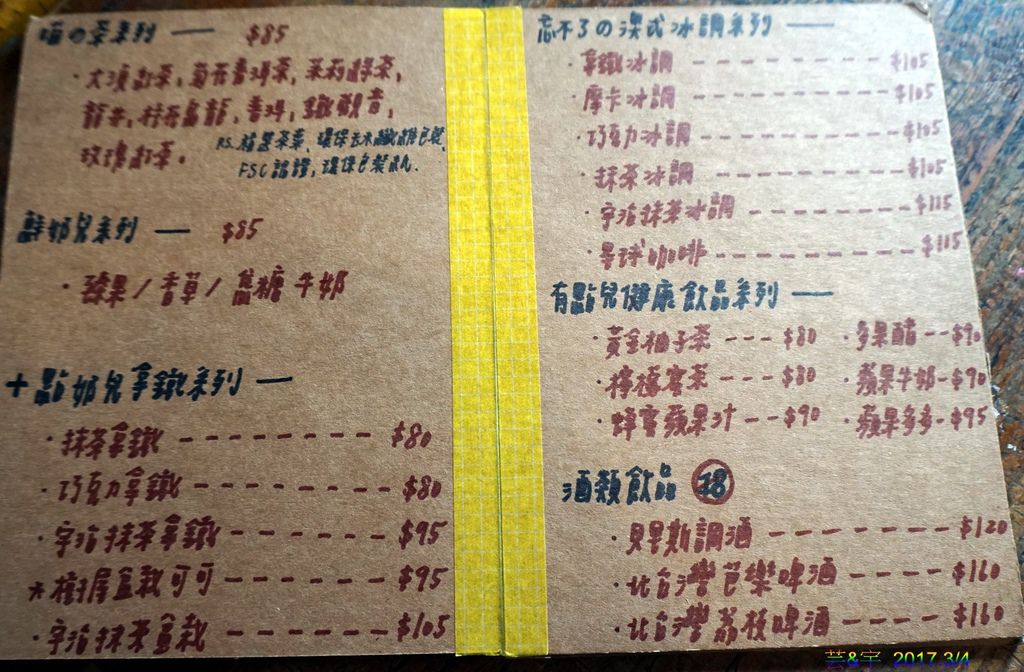 喝の茶系列 — $85
·大漠紅茶,菊花普洱茶,茉莉綠茶,
龍井,桂花烏龍,普洱,鐵觀音,
玫瑰紅茶。
環保玉米纖維包裝,
FSC認證,環保包裝瓜.
鮮奶兒系列 — $85
·榛果/香草/焦糖 牛奶
+點奶兒拿鐵系列 —
·抹茶拿鐵 $80
·巧克力拿鐵 $80
·宇治抹茶拿鐵 $95
*樹屋盆栽可可 $95
·宇治抹茶盆栽 $105
忘不了の漢式冰調系列 —
·拿鐵冰調 $105
·摩卡冰調 $105
·巧克力冰調 $105
·抹茶冰調 $105
·宇治抹茶冰調 $115
·星球咖啡 $115
有點兒健康飲品系列 —
·黃金柚子茶 --- $80 ·多果醋 -- $90
·檸檬蜜茶 --- $80 ·蘋果牛奶 - $90
·蜂蜜蘋果汁 -- $90 ·蘋果多多 - $95
酒類飲品 18
·貝里斯調酒 $120
·北台灣芭樂啤酒 $160
·北台灣荔枝啤酒 $160
芸&宇 2017.3/4